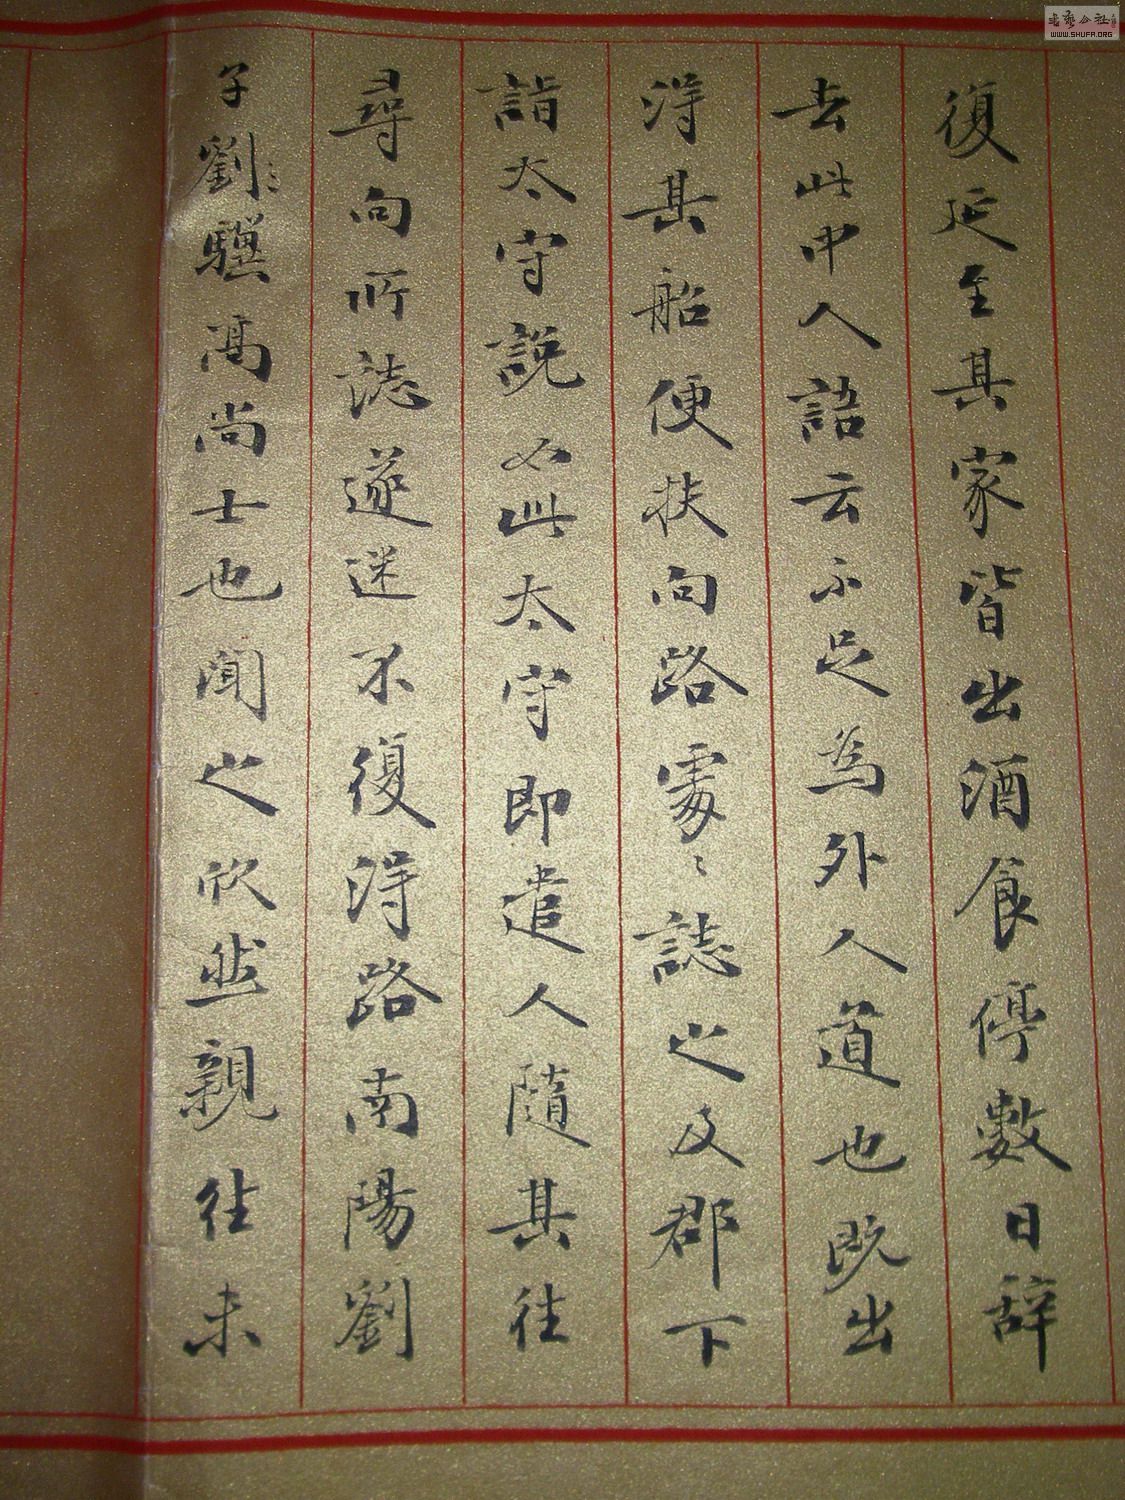 復延至其家皆出酒食停數日辞
去此中人語云不足為外人道也既出
得其船便扶向路處〻誌之及郡下
詣太守說如此太守即遣人隨其往
尋向所誌遂迷不復得路南陽劉
子劉〻驥高尚士也聞之欣然親往未
書藝公社
WWW.SHUFA.ORG